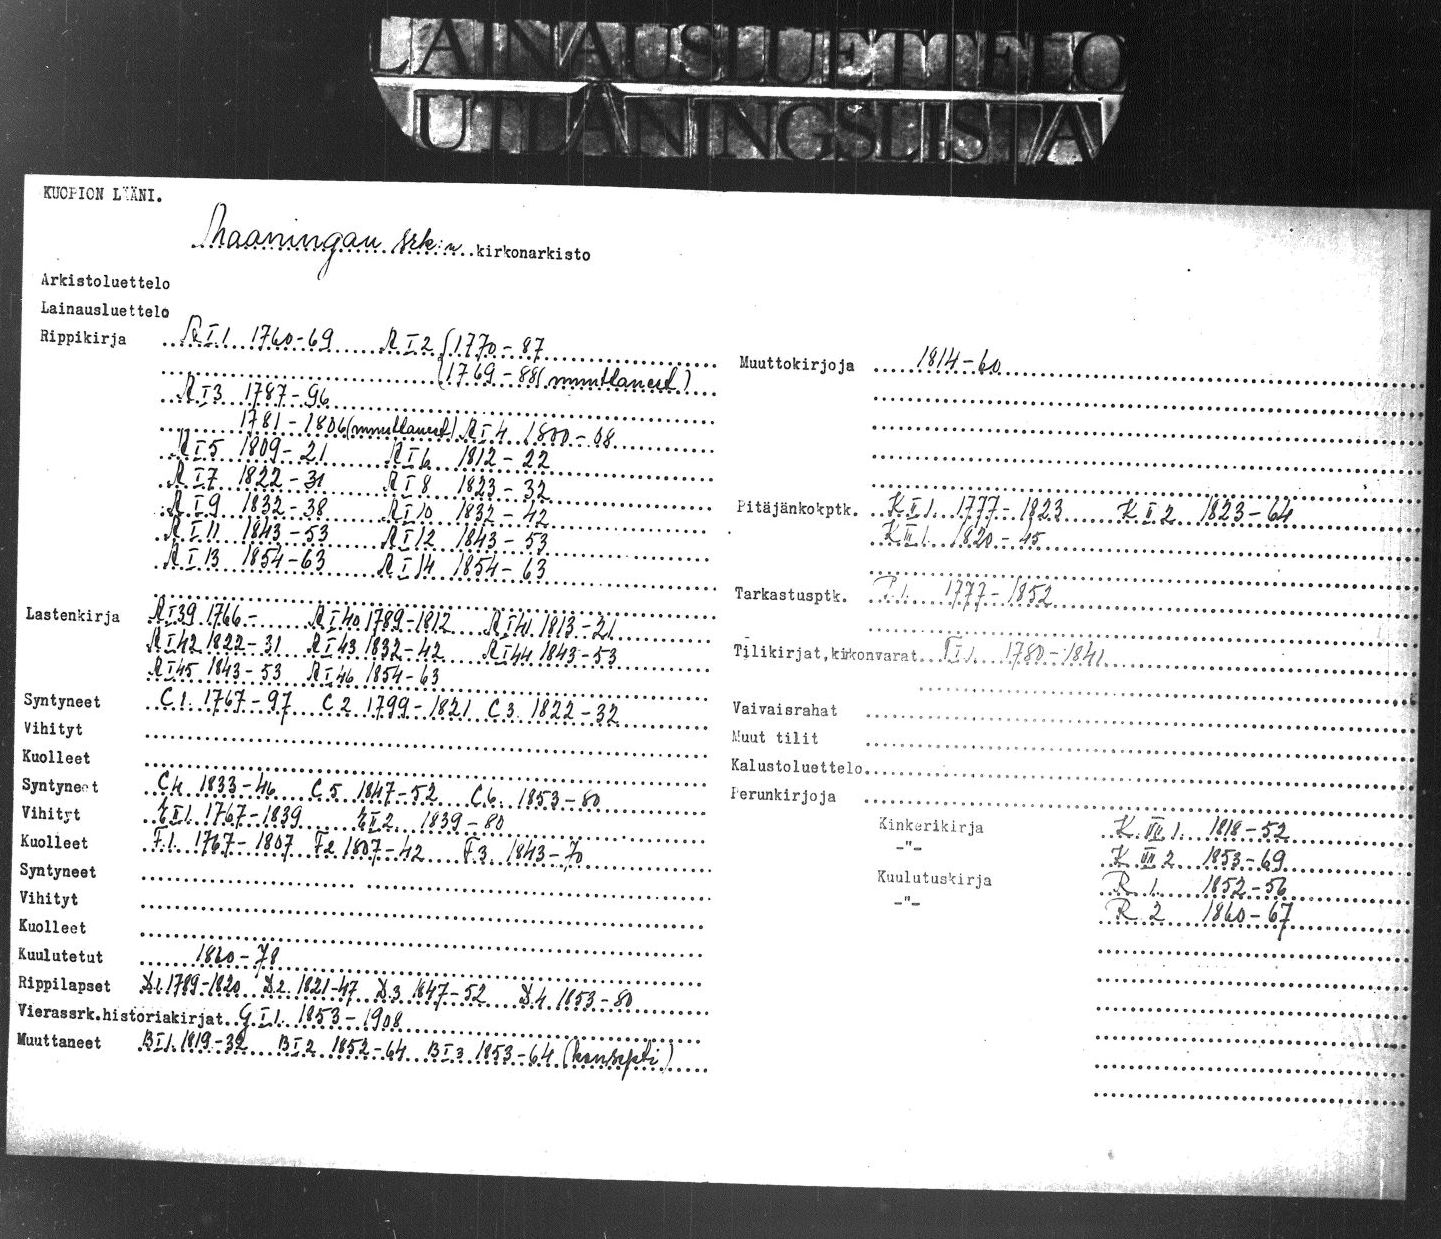 LAINAUSLUETTELO
UTLÅNINGSLISTA
KUOPION LÄÄNI.
Maaningan srk:n kirkonarkisto
Arkistoluettelo
Lainausluettelo
Rippikirja R I 1 1760-69 R I 2 1770-87
1769-88 (muuttaneet)
R I 3 1787-96
1781-1806 (muuttaneet) R I 4 1800-08
R I 5 1809-21 R I 6 1812-22
R I 7 1822-31 R I 8 1823-32
R I 9 1832-38 R I 10 1832-42
R I 11 1843-53 R I 12 1843-53
R I 13 1854-63 R I 14 1854-63
Lastenkirja R I 39 1766- R I 40 1789-1812 R I 41 1813-21
R I 42 1822-31 R I 43 1832-42 R I 44 1843-53
R I 45 1843-53 R I 46 1854-63
Syntyneet C 1. 1767-97 C 2 1799-1821 C 3. 1822-32
Vihityt
Kuolleet
Syntyneet C 4. 1833-46 C 5 1847-52 C 6. 1853-80
Vihityt E II 1. 1767-1839 E II 2 1839-80
Kuolleet F. 1. 1767-1807 F 2 1807-42 F. 3. 1843-70
Syntyneet
Vihityt
Kuolleet
Kuulutetut 1860-78
Rippilapset D. 1. 1789-1820 D 2. 1821-47 D. 3 1847-52 D. 4. 1853-80
Vierassrk.historiakirjat G I 1. 1853-1908
Muuttaneet B I 1. 1819-32 B I 2 1852-64 B I 3 1853-64 (konsepti)
Muuttokirjoja 1814-60
Pitäjänkokptk. K II 1. 1777-1823 K I 2 1823-64
K III 1. 1820-45
Tarkastusptk. P. 1. 1777-1852
Tilikirjat,kirkonvarat I 1. 1780-1841
Vaivaisrahat
Muut tilit
Kalustoluettelo
Perunkirjoja
Kinkerikirja K VII 1. 1818-52
-"- K VII 2 1853-69
Kuulutuskirja R 1. 1852-56
-"- R 2 1860-67